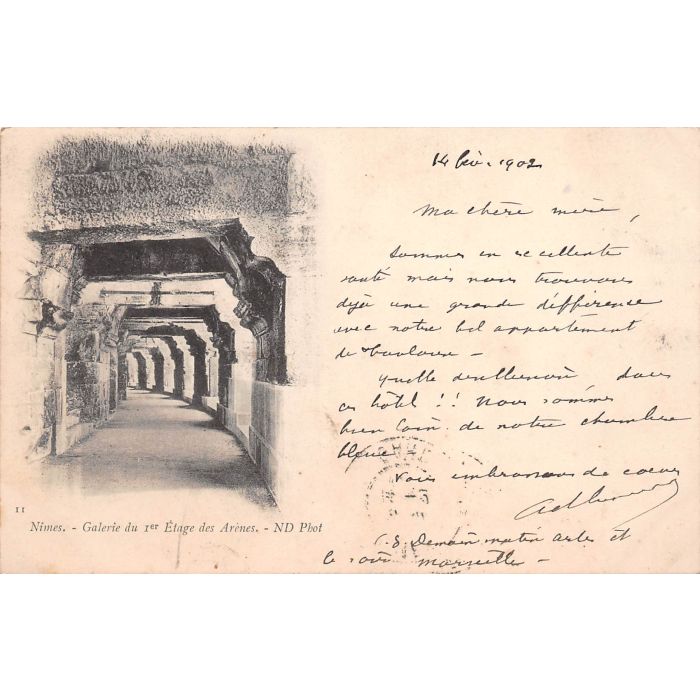 14 fév. 1902
Ma chère mère,
Sommes en excellente
santé mais nous trouvons
déjà une grande différence
avec notre bel appartement
de Toulouse -
Quelle désillusion dans
cet hôtel !! Nous sommes
bien loin de notre chambre
bleue
Vous embrassons de coeur
P.S. Demain matin Arles et
le soir Marseille -
11
Nimes. - Galerie du 1er Étage des Arènes. - ND Phot